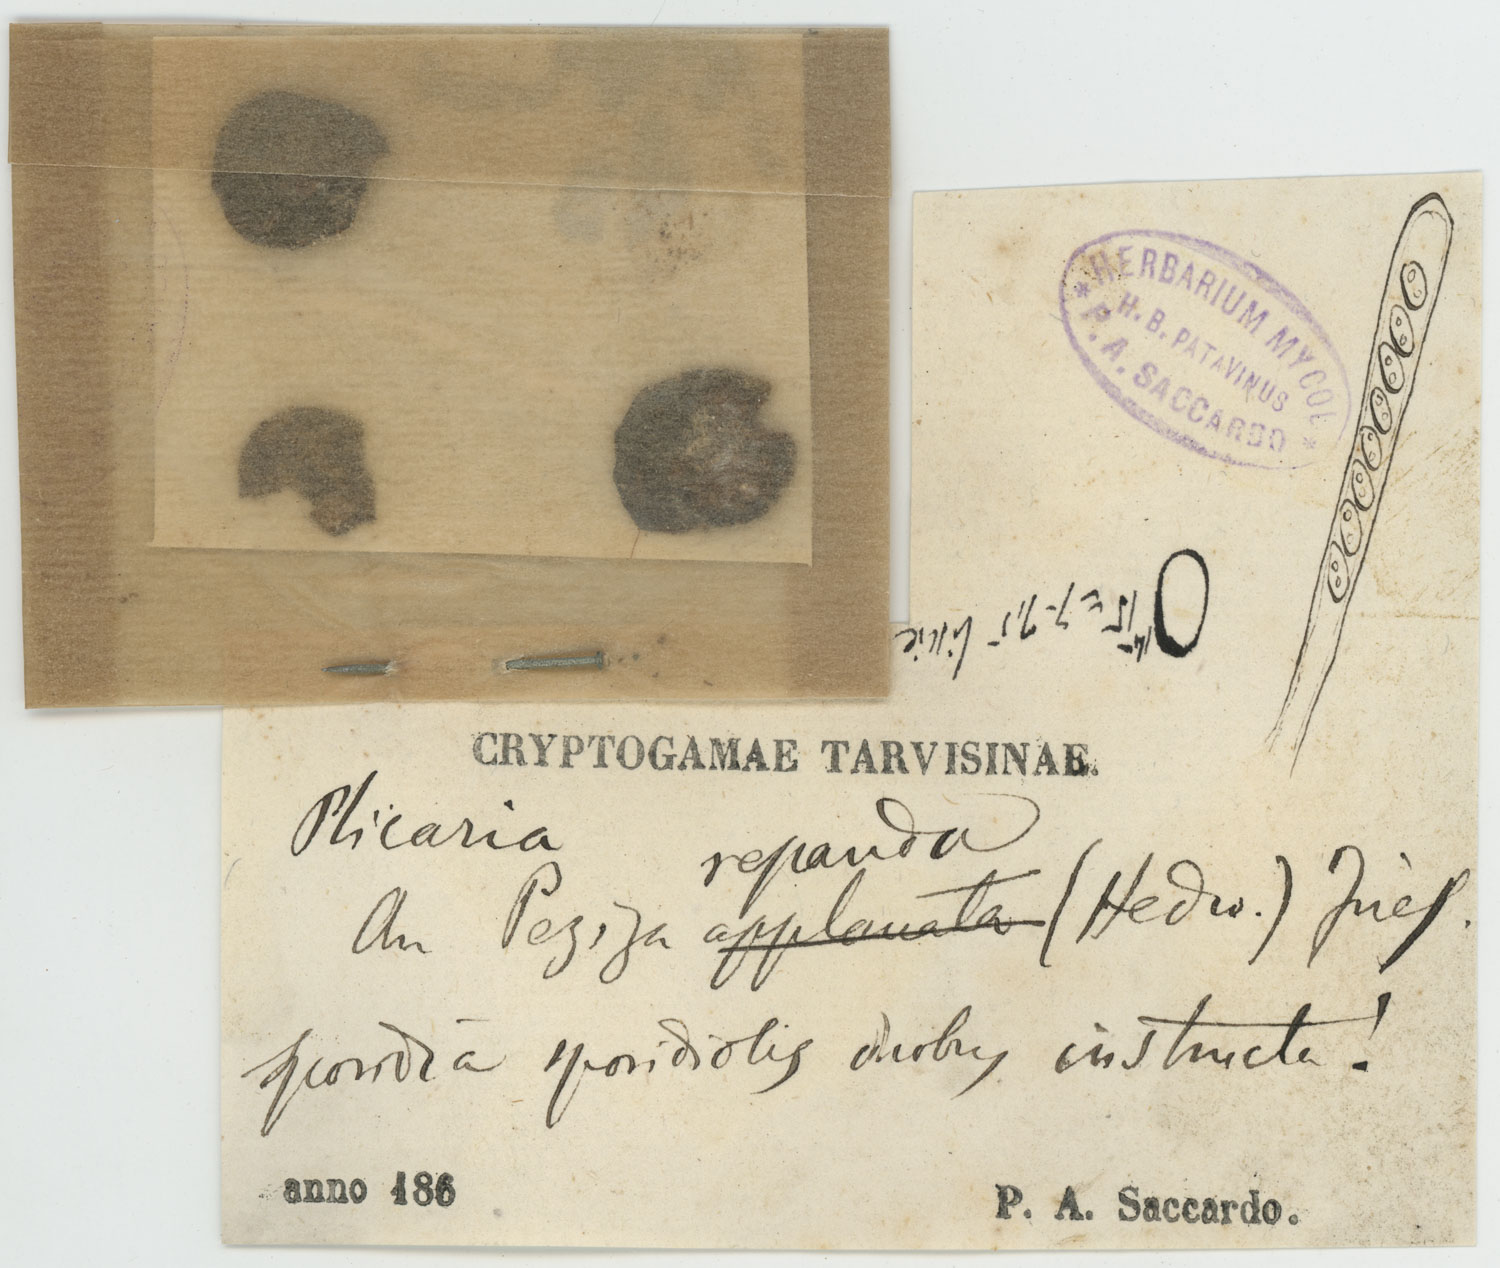 * HERBARIUM MYCOL *
H. B. PATAVINUS
P. A. SACCARDO
CRYPTOGAMAE TARVISINAE.
Plicaria
repanda
An Peziza applanata (Hedw.) Fries.
sporidia sporidiolis duobus instructa!
anno 186
P. A. Saccardo.